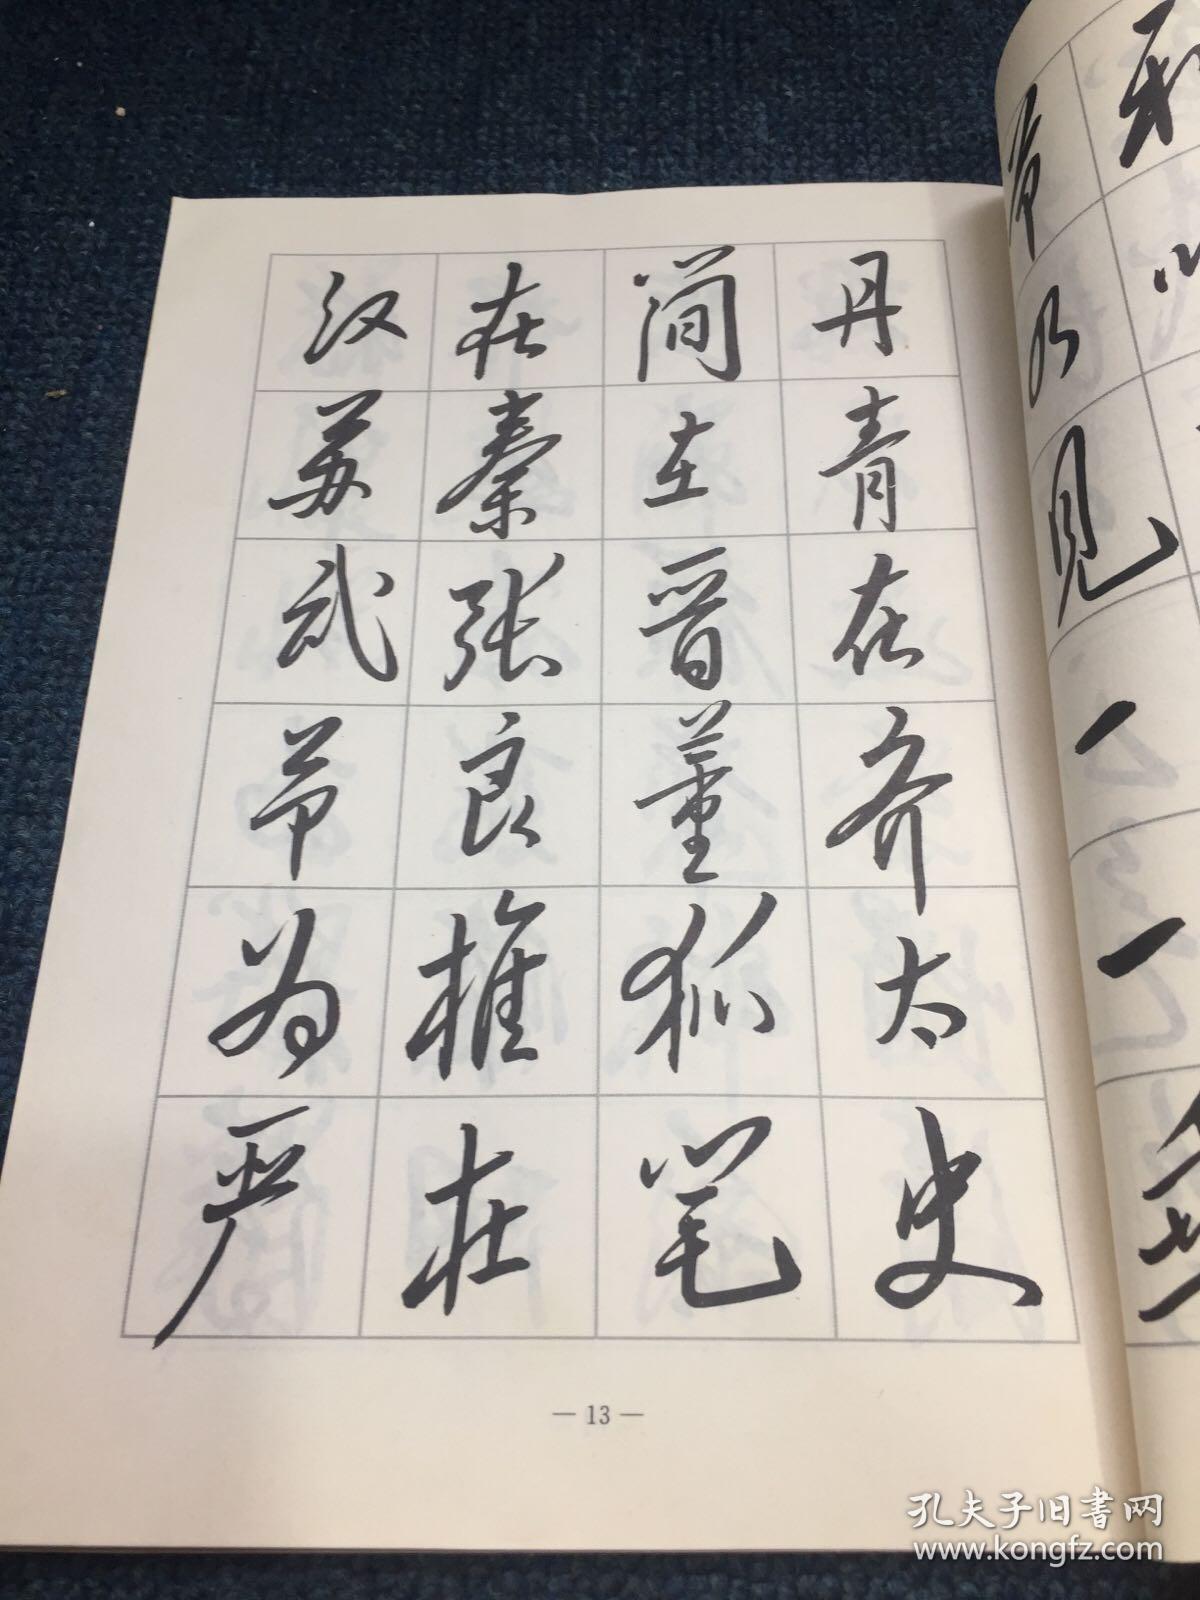 节乃见一一垂
丹青在齐太史
简在晋董狐笔
在秦张良椎在
汉苏武节为严
— 13 —
孔夫子旧书网
www.kongfz.com